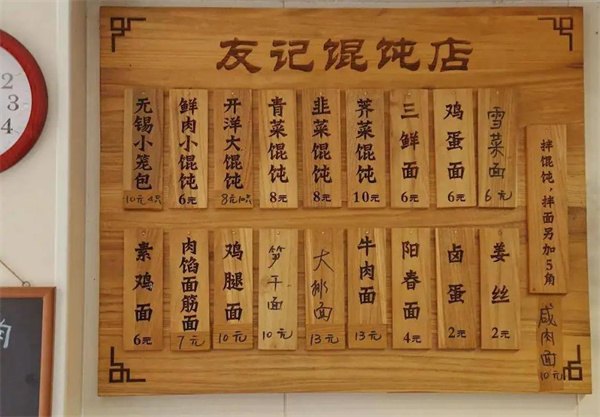 友记馄饨店
无锡小笼包
10元4只
鲜肉小馄饨
6元
开洋大馄饨
8元10只
青菜馄饨
8元
韭菜馄饨
8元
荠菜馄饨
10元
三鲜面
6元
鸡蛋面
6元
雪菜面
6元
拌馄饨，拌面另加5角
素鸡面
6元
肉馅面筋面
7元
鸡腿面
10元
笋干面
10元
大排面
13元
牛肉面
13元
阳春面
4元
卤蛋
2元
姜丝
2元
咸肉面
10元
2
3
4